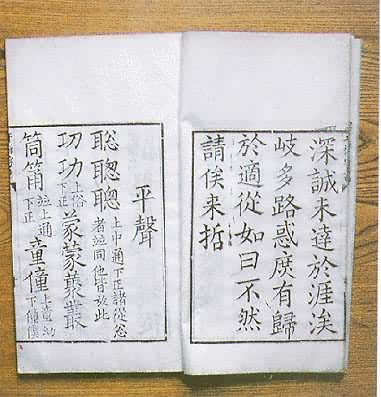 深誠未達於涯涘
岐多路惑庶有歸
於適從如曰不然
請俟来哲
平聲
聡聦聰上中通下正諸從忩者並同他皆放此
㓛功上俗下正蒙蒙叢叢
筒筩並上通下正童僮上童幼下僮僕